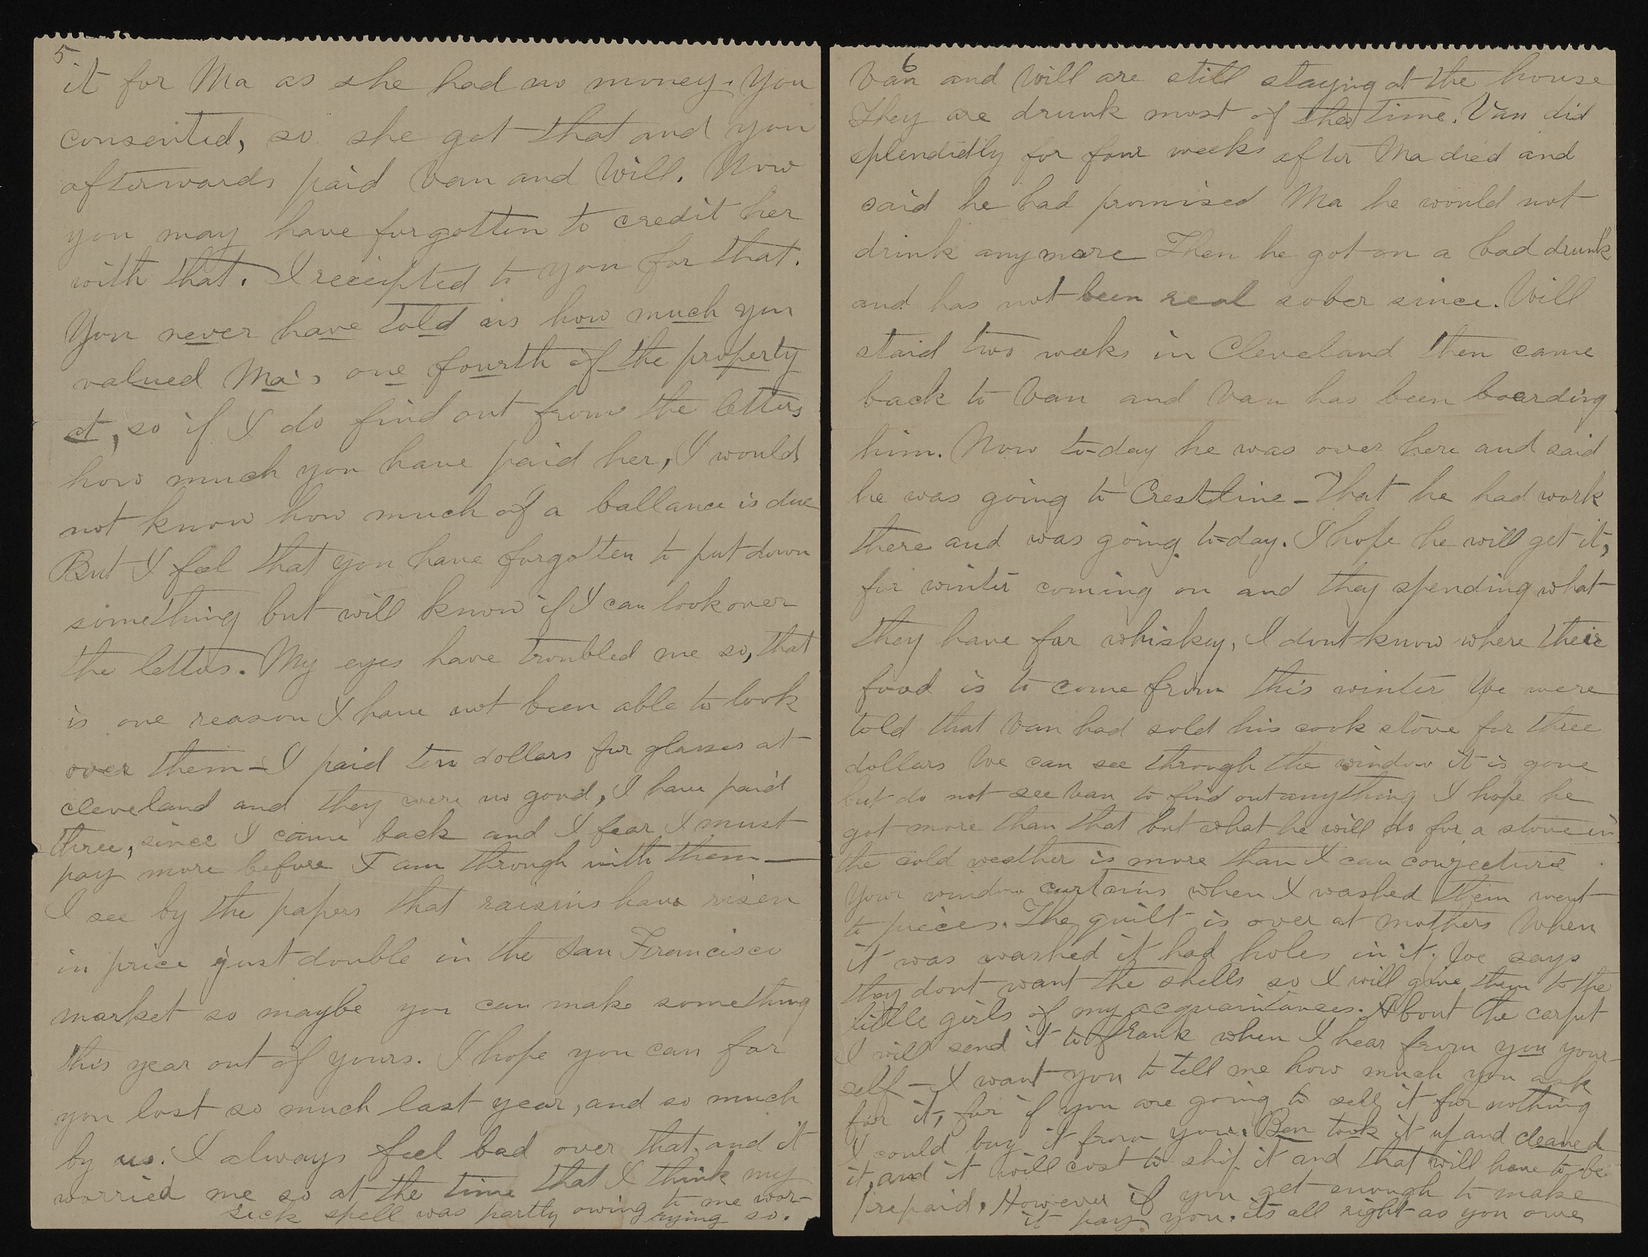 5
it for Ma as she had no money. You
consented, so she got that and you
afterwards paid Van and Will. Now
you may have forgotten to credit her
with that. I receipted to you for that.
You never have told us how much you
valued Ma's one fourth of the property
at, so if I do find out from the letters
how much you have paid her, I would
not know how much of a ballance is due
But I feel that you have forgotten to put down
something but will know if I can look over
the letters. My eyes have troubled me so, that
is one reason I have not been able to look
over them – I paid ten dollars for glasses at
Cleveland and they were no good, I have paid
three, since I came back and I fear I must
pay more before I am through with them —
I see by the papers that raisins have risen
in price just double in the San Francisco
market so maybe you can make something
this year out of yours. I hope you can for
you lost so much last year, and so much
by us. I always feel bad over that, and it
worried me so at the time that I think my
sick spell was partly owing to me wor-
rying so.
6
Van and Will are still staying at the house
They are drunk most of the time. Van did
splendidly for four weeks after Ma died and
said he had promised Ma he would not
drink anymore Then he got on a bad drunk
and has not been real sober since. Will
staid two weeks in Cleveland then came
back to Van and Van has been boarding
him. Now to-day he was over here and said
he was going to Crestline – That he had work
there and was going to-day. I hope he will get it,
for winter coming on and they spending what
they have for whiskey, I dont know where their
food is to come from this winter We were
told that Van had sold his cook stove for three
dollars We can see through the window it is gone
but do not see Van to find out anything I hope he
got more than that but what he will do for a stove in
the cold weather is more than I can conjecture.
Your window curtains when I washed them went
to pieces. The quilt is over at mothers When
it was washed it had holes in it. Joe says
they dont want the shells so I will give them to the
little girls of my acquaintances. About the carpet
I will send it to Frank when I hear from you your-
self – I want you to tell me how much you ask
for it, for if you are going to sell it for nothing
I could buy it from you. Ben took it up and cleaned
it, and it will cost to ship it and that will have to be
prepaid. However if you get enough to make
it pay you. its all right as you owe